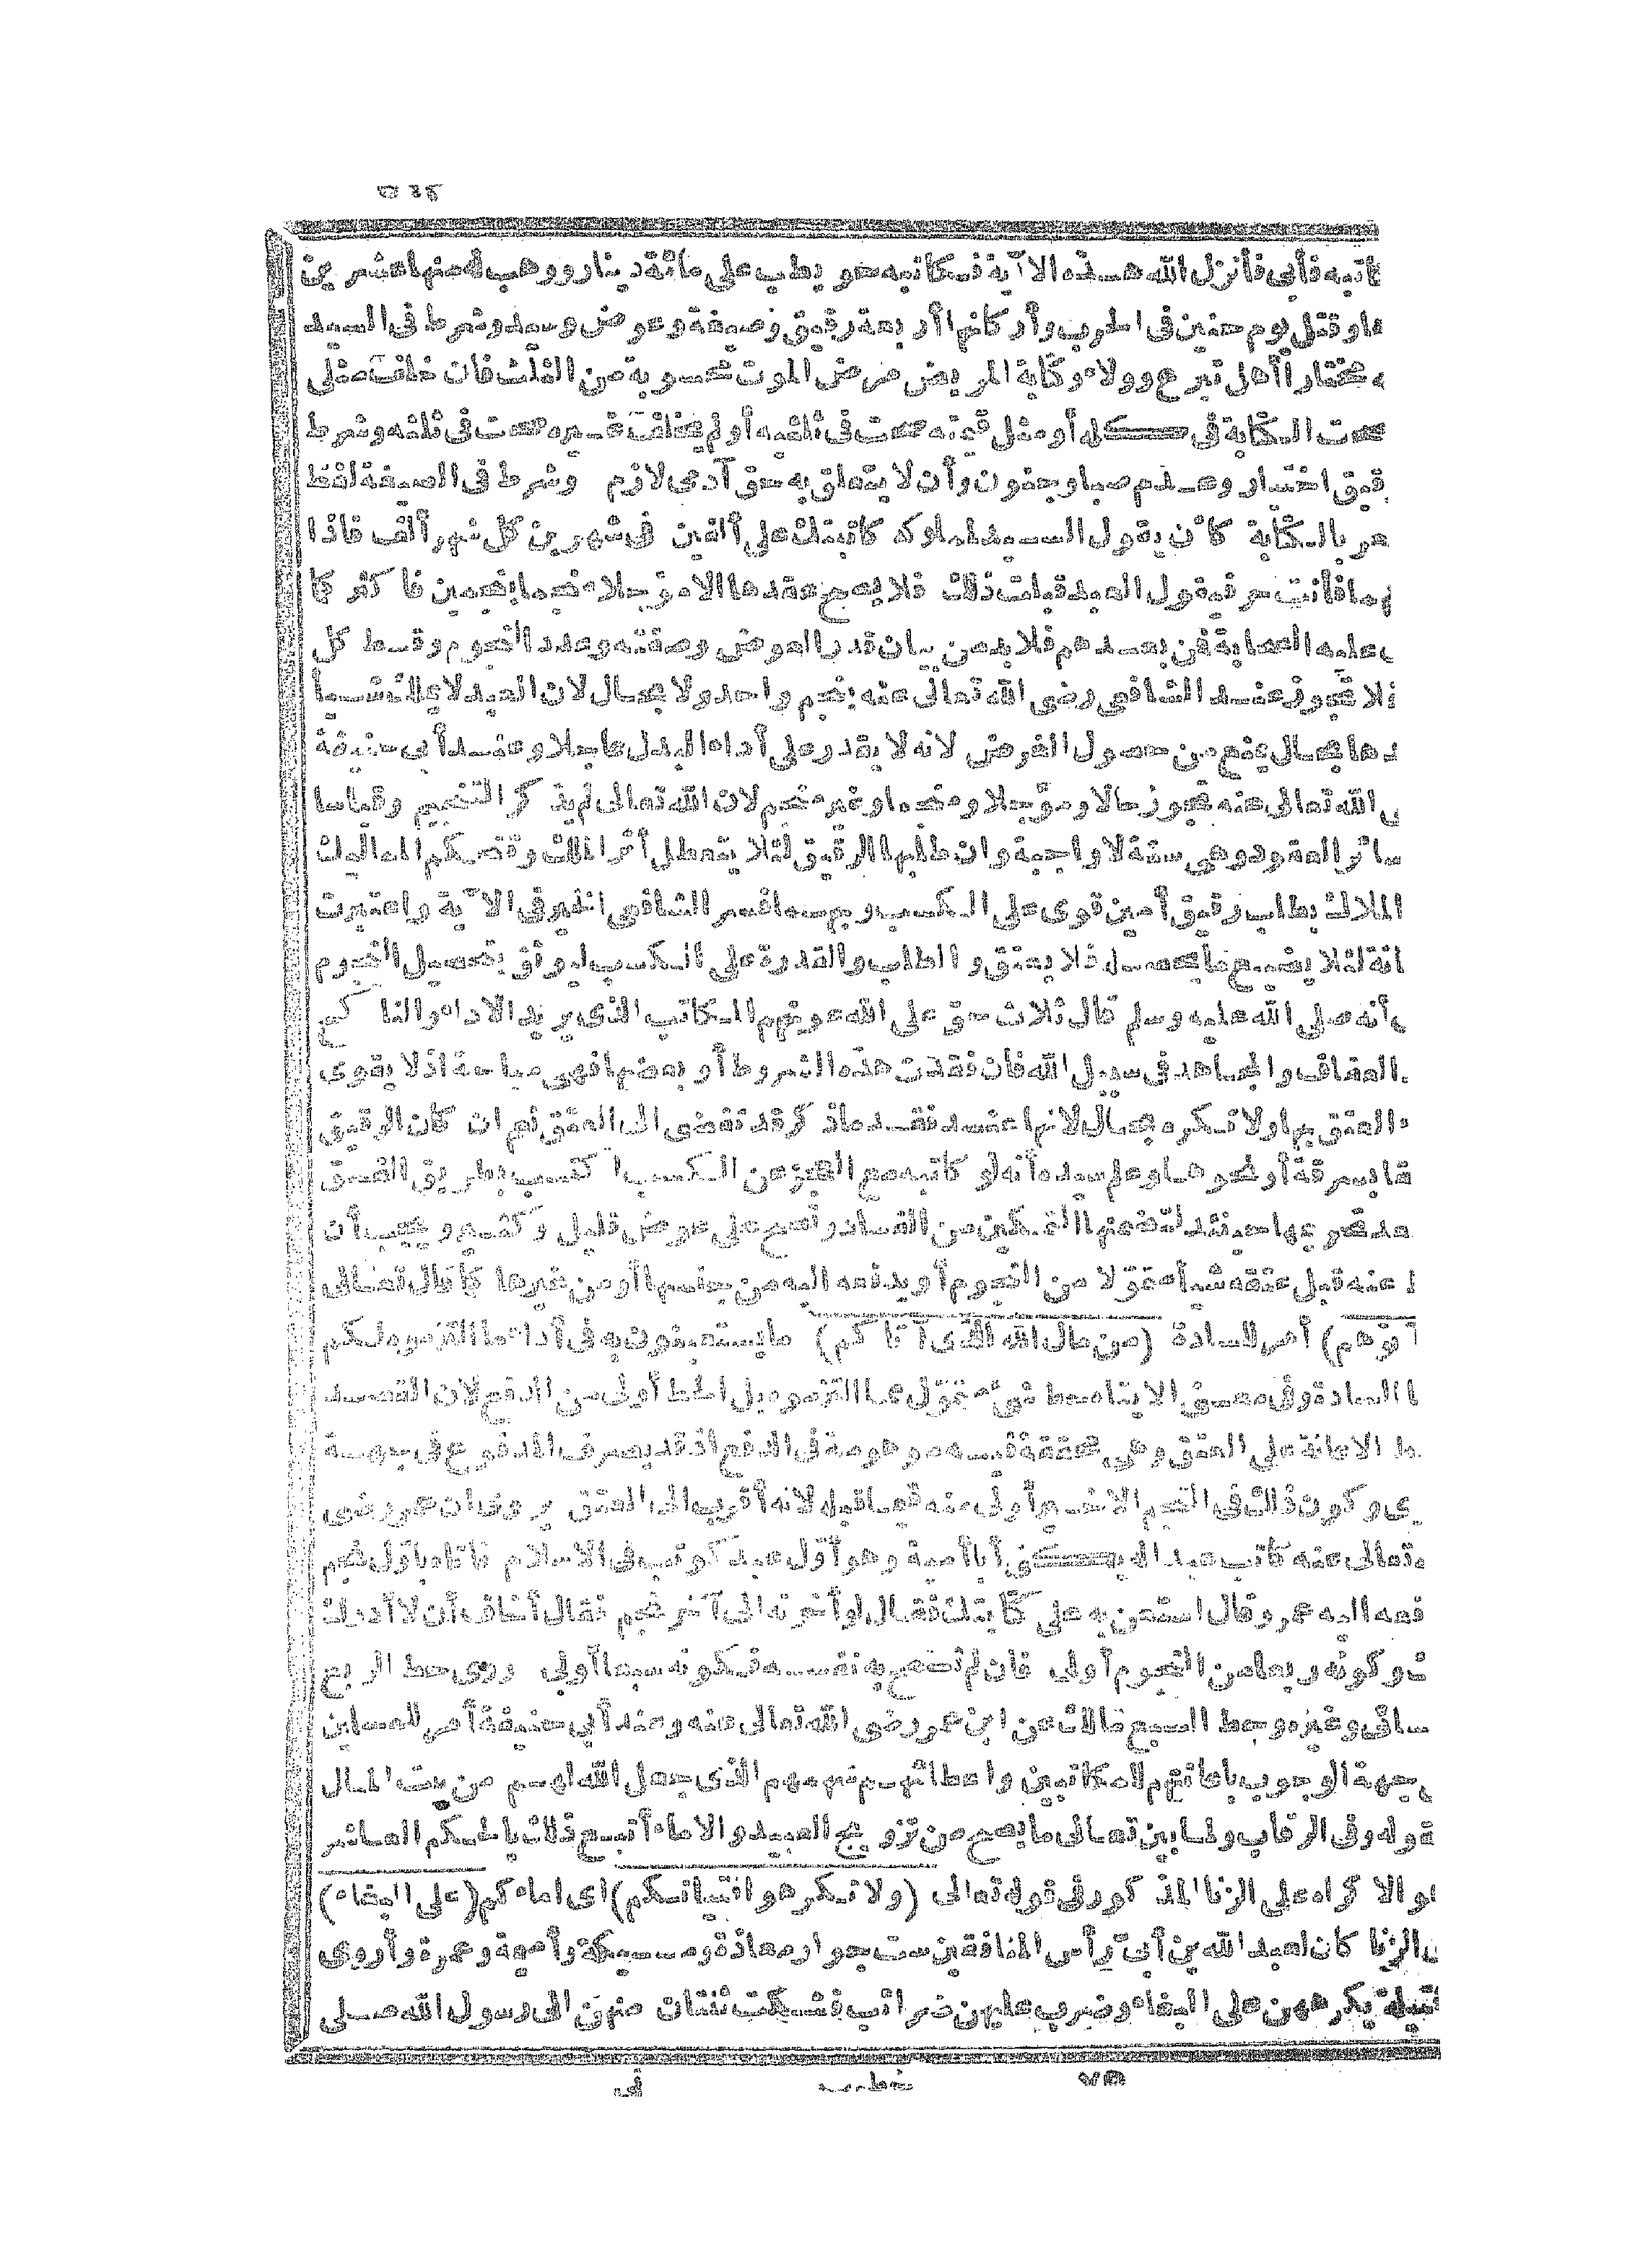 كاتبه فأبى فأنزل الله هذه الآية فكاتبه حويطب على مائة دينار ووهب له منها عشرين
فأداها وقتل يوم حنين في الحرب وأركانها أربعة رقيق وصيغة وعوض وسيد وشرط في السيد
مختارا أهل تبرع وولاء وكتابة المريض مرض الموت محسوبة من الثلث فان خلف مثلي
صحت الكتابة في كله أو مثل قيمته صحت في ثلثيه أو لم يخلف غيره صحت في ثلثه وشرط
قيق اختيار وعدم صبا وجنون وأن لا يتعلق به حق آدمي لازم وشرط في الصيغة لفظ
عر بالكتابة كان يقول السيد لمملوكه كاتبتك على ألفين في شهرين كل شهر ألف فاذا
هما فأنت حر فيقول العبد قبلت ذلك فلا يصح عقدها الا مؤجلا منجما بنجمين فا كثر كما
عليه الصحابة فمن بعدهم فلا بد من بيان قدر العوض وصفته وعدد النجوم وقسط كل
فلا تجوز عند الشافعي رضى الله تعالى عنه بنجم واحد ولا بحال لان العبد لا يملك شيأ
دها بحال يمنع من حصول الغرض لانه لا يقدر على أداء البدل عاجلا وعند أبي حنيفة
الله تعالى عنه تجوز حالا ومؤجلا ومنجما وغير منجم لان الله تعالى لم يذ كر التنجيم وقياسا
سائر العقود وهى سنة لا واجبة وان طلبها الرقيق لئلا يتعطل أثر الملك وتتحكم المماليك
الملاك بطلب رقيق أمين قوى على الكسب وبهما فسر الشافعي الخير في الآية واعتبرت
انة لئلا يضيع ما يحصله فلا يعتق و الطلب والقدرة على الكسب ليوثق بتحصيل النجوم
أنه صلى الله عليه وسلم قال ثلاث حق على الله عونهم المكاتب الذى يريد الاداء والنا كح
العفاف والمجاهد في سبيل الله فان فقدت هذه الشروط أو بعضها فهى مباحة اذ لا يقوى
العتق بها ولا تكره بحال لانها عند فقد ماذ كر قد تفضى الى العتق نعم ان كان الرقيق
قا بسرقة أو نحوها وعلم سيده أنه لو كاتبه مع العجز عن الكسب ا كتسب بطريق الفسق
عد تحريمها حينئذ لتضمنها التمكين من الفساد وتصح على عوض قليل وكثير ويجب أن
عنه قبل عتقه شيأ متمولا من النجوم أو يدفعه اليه من جنسها أو من غيرها كما قال تعالى
آتوهم) أمر للسادة (من مال الله الذى آتا كم) ما يستعينون به في أداء ما التزموه لكم
ا السادة وفى معنى الايتاء حط شئ متمول مما التزموه بل الحط أولى من الدفع لان القصد
ط الاعانة على العتق وهى محققة فيه موهومة في الدفع اذ قد يصرف المدفوع في جهة
ى وكون ذلك في النجم الاخير أولى منه فيما قبله لانه أقرب الى العتق يروى ان عمر رضى
تعالى عنه كاتب عبدا له يكنى أبا أمية وهو أول عبد كوتب في الاسلام فأتاه بأول نجم
فعه اليه عمر وقال استعن به على كتابتك فقال لو أخرته الى آخر نجم فقال أخاف أن لا أدرك
وكونه ربعا من النجوم أولى فان لم تسمح به نفسه فكونه سبعا أولى روى حط الربع
سائى وغيره وحط السبع مالك عن ابن عمر رضى الله تعالى عنه وعند أبي حنيفة أمر للمسلمين
جهة الوجوب باعانتهم للمكاتبين واعطائهم سهمهم الذى جعل الله لهم من بيت المال
قوله وفى الرقاب ولما بين تعالى ما يصح من تزويج العبيد والاماء أتبع ذلك بالحكم العاشر
و الا كراه على الزنا المذ كور فى قوله تعالى (ولا تكرهوا فتياتكم) اى اماء كم (على البغاء)
الزنا كان لعبد الله بن أبى رأس المنافقين ست جوار معاذة ومسيكة وأميمة وعمرة وأروى
قتيلة يكرههن على البغاء وضرب عليهن ضرائب فشكت ثنتان منهن الى رسول الله صلى
٧٥ خطيب نى